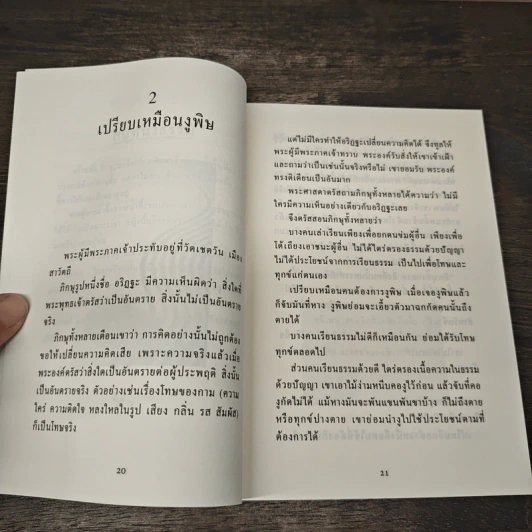 2
เปรียบเหมือนงูพิษ
พระผู้มีพระภาคเจ้าประทับอยู่ที่วัดเชตวัน เมือง
สาวัตถี
ภิกษุรูปหนึ่งชื่อ อริฏฐะ มีความเห็นผิดว่า สิ่งใดที่
พระพุทธเจ้าตรัสว่าเป็นอันตราย สิ่งนั้นไม่เป็นอันตราย
จริง
ภิกษุทั้งหลายเตือนเขาว่า การคิดอย่างนั้นไม่ถูกต้อง
ขอให้เปลี่ยนความคิดเสีย เพราะความจริงแล้วเมื่อ
พระองค์ตรัสว่าสิ่งใดเป็นอันตรายต่อผู้ประพฤติ สิ่งนั้น
เป็นอันตรายจริง ตัวอย่างเช่นเรื่องโทษของกาม (ความ
ใคร่ ความติดใจ หลงใหลในรูป เสียง กลิ่น รส สัมผัส)
ก็เป็นโทษจริง
20
แต่ไม่มีใครทำให้อริฏฐะเปลี่ยนความคิดได้ จึงทูลให้
พระผู้มีพระภาคเจ้าทราบ พระองค์รับสั่งให้เขาเข้าเฝ้า
และถามว่าเป็นเช่นนั้นจริงหรือไม่ เขายอมรับ พระองค์
ทรงติเตียนเป็นอันมาก
พระศาสดาตรัสถามภิกษุทั้งหลายได้ความว่า ไม่มี
ใครมีความเห็นอย่างเดียวกับอริฏฐะเลย
จึงตรัสสอนภิกษุทั้งหลายว่า
บางคนเล่าเรียนเพียงเพื่อยกตนข่มผู้อื่น เพียงเพื่อ
โต้เถียงเอาชนะผู้อื่น ไม่ได้ไตร่ตรองธรรมด้วยปัญญา
ไม่ได้ประโยชน์จากการเรียนธรรม เป็นไปเพื่อโทษและ
ทุกข์แก่ตนเอง
เปรียบเหมือนคนต้องการงูพิษ เมื่อเจองูพิษแล้ว
ก็จับมันที่หาง งูพิษย่อมจะเอี้ยวตัวมาฉกกัดคนนั้นถึง
ตายได้
บางคนเรียนธรรมไม่ดีก็เหมือนกัน ย่อมได้รับโทษ
ทุกข์ตลอดไป
ส่วนคนเรียนธรรมด้วยดี ไตร่ตรองเนื้อความในธรรม
ด้วยปัญญา เขาเอาไม้ง่ามหนีบคองูไว้ก่อน แล้วจับที่คอ
งูกัดไม่ได้ แม้หางมันจะพันแขนพันขาบ้าง ก็ไม่ถึงตาย
หรือทุกข์ปางตาย เขาย่อมนำงูไปใช้ประโยชน์ตามที่
ต้องการได้
21